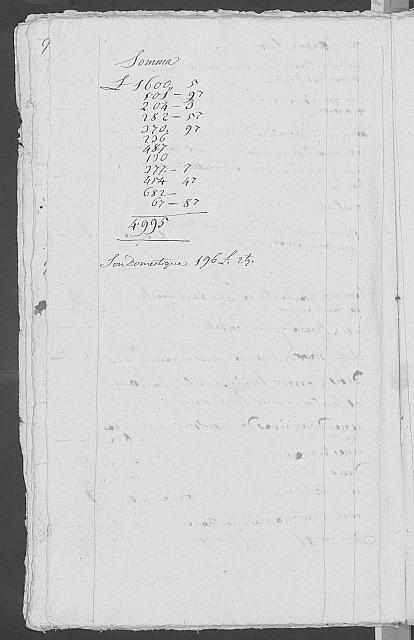 9
Somma
£ 1600, 5
101 - 97
204 - 3
282 - 57
370. 97
236
487
190
377 - 7
454 47
682 -
67 - 87
4995
Son Domestique 196 £. 25.